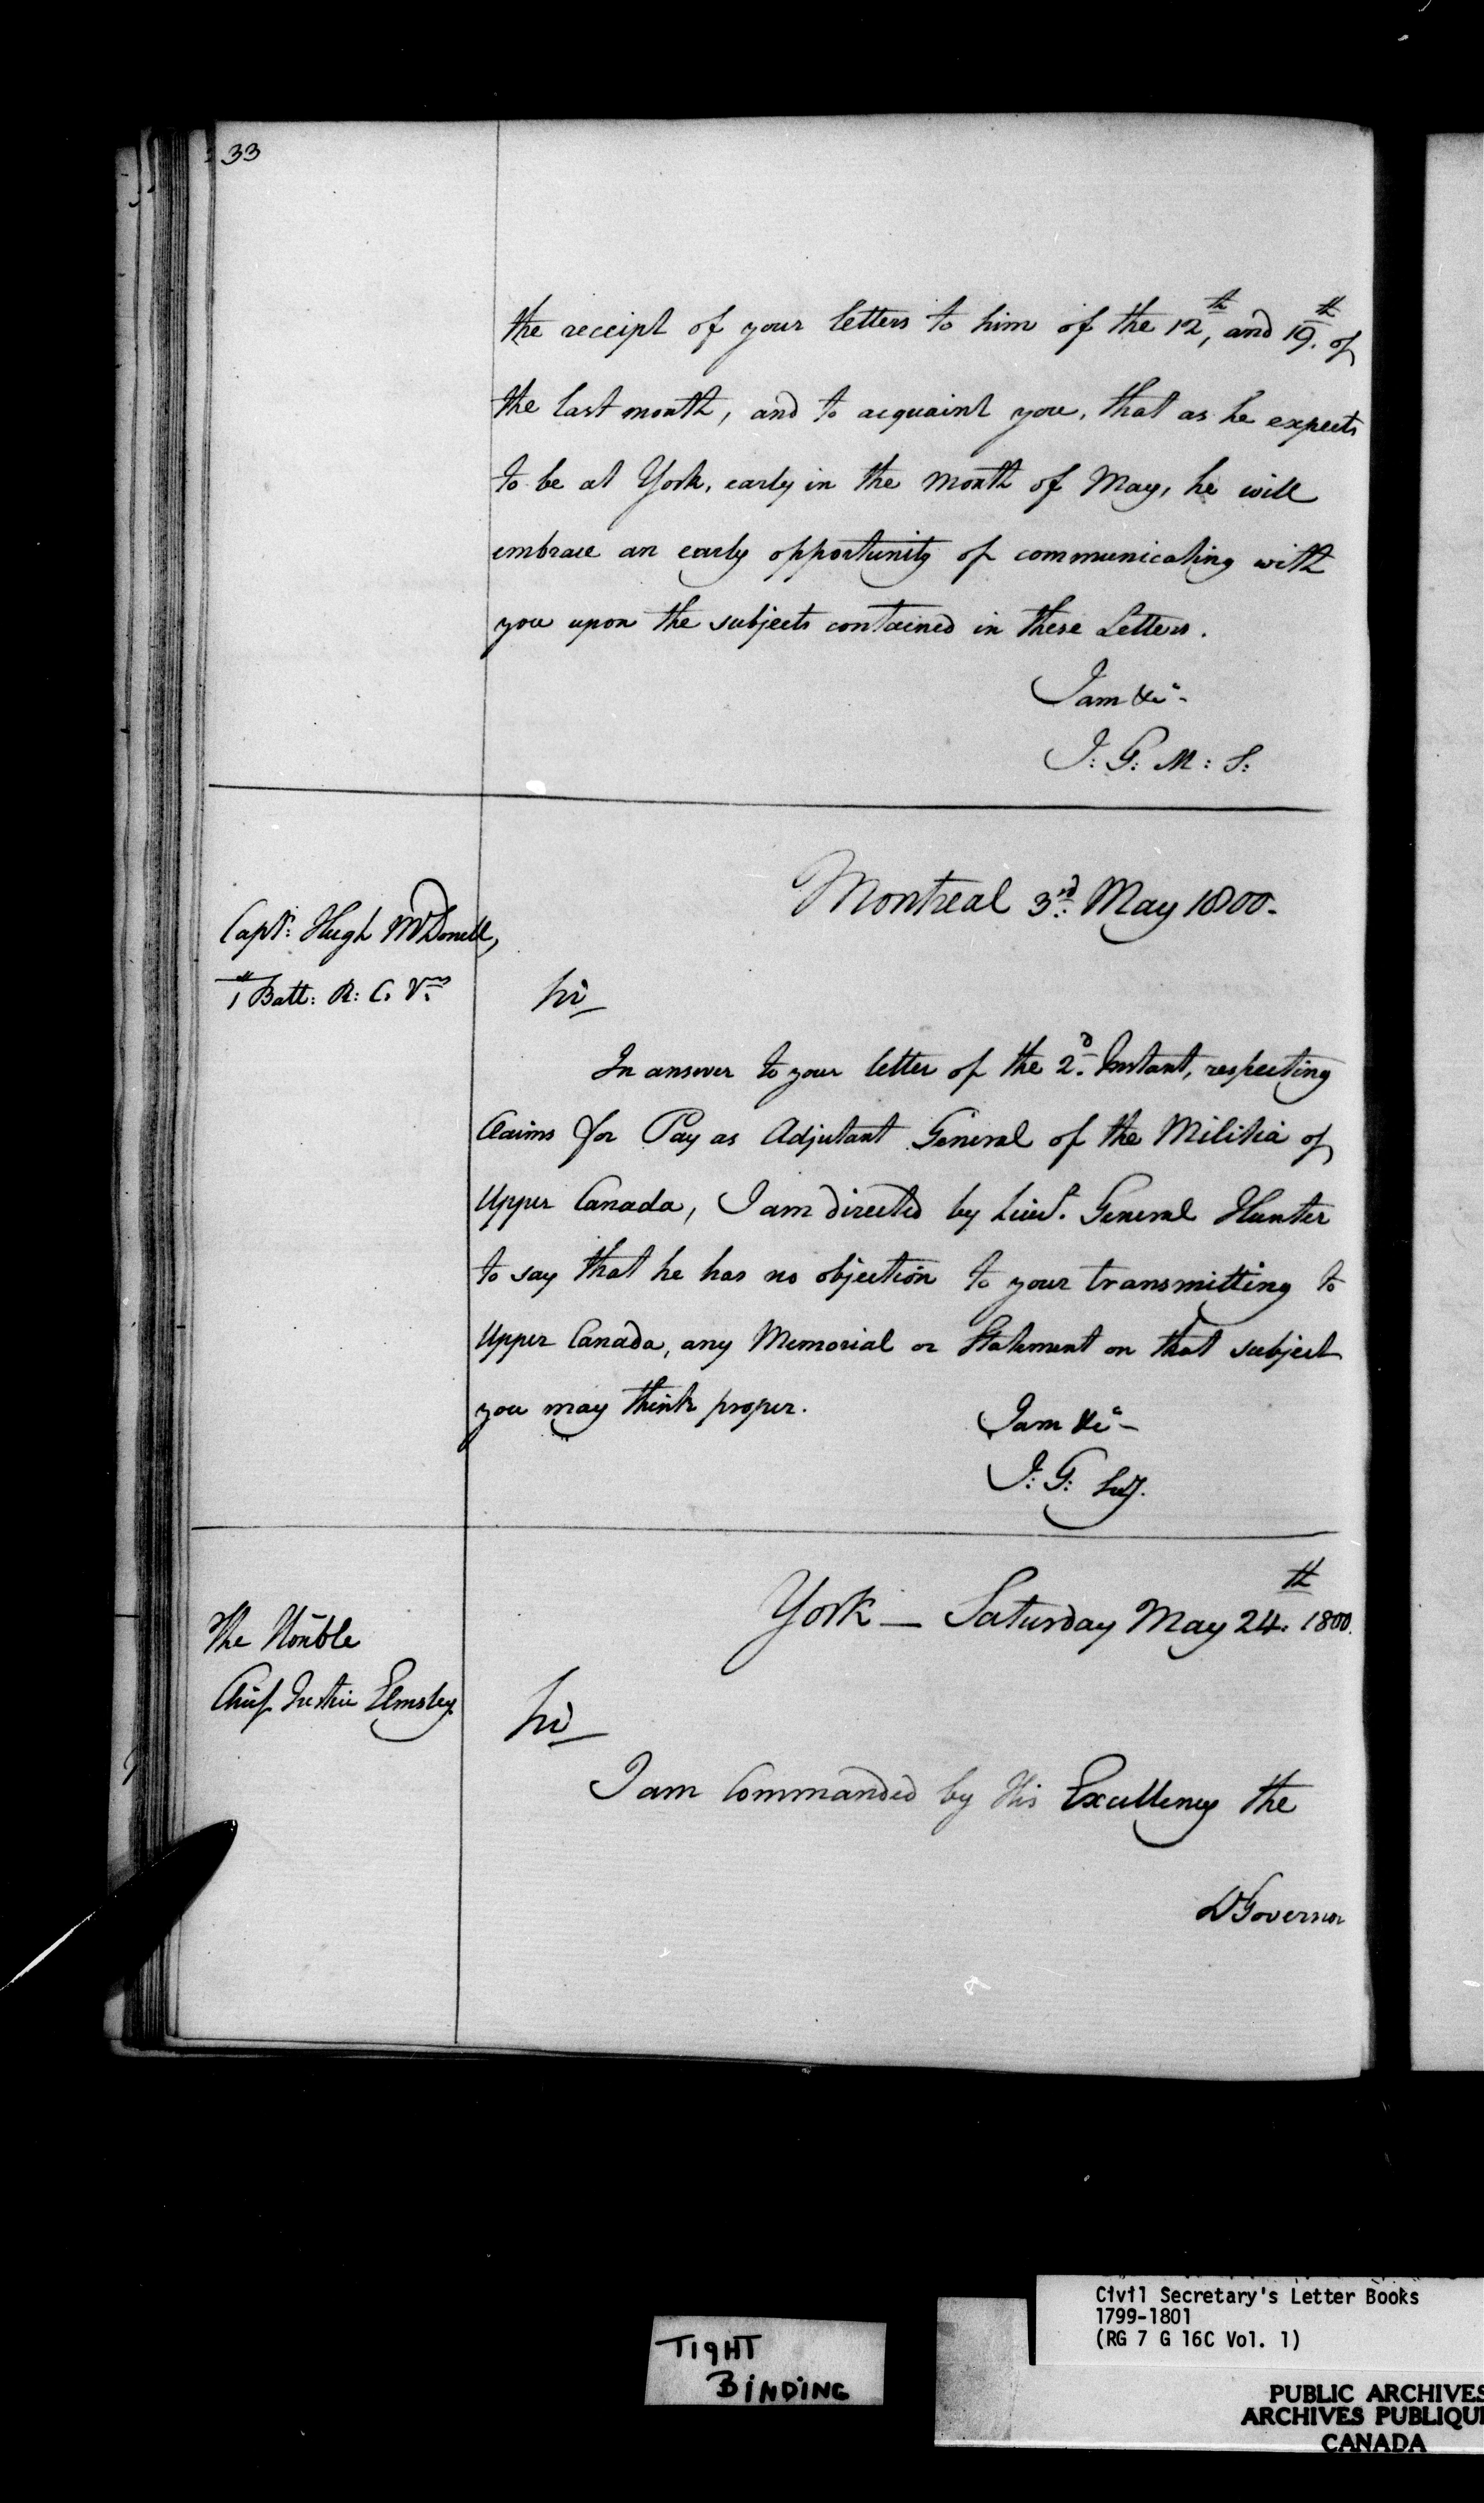 33
the receipt of your letters to him of the 12th, and 19th. of
the last month, and to acquaint you, that as he expects
to be at York, early in the Month of May, he will
embrace an early opportunity of communicating with
you upon the subjects contained in these Letters.
I am &c-
J: G: M: S:
Montreal 3rd: May 1800-
Capt: Hugh McDonell,
1st Batt: R: C: Vrs
Sir
In answer to your letter of the 2d. Instant, respecting
Claims for Pay as Adjutant General of the Militia of
Upper Canada, I am directed by Lieut. General Hunter
to say that he has no objection to your transmitting to
Upper Canada, any Memorial or Statement on that subject
you may think proper.
I am &c-
J: G: Secy.
York — Saturday May 24th: 1800.
The Honble
Chief Justice Elmsley
Sir
I am Commanded by His Excellency the
Lt Governor
TIGHT
BINDING
Civil Secretary's Letter Books
1799-1801
(RG 7 G 16C Vol. 1)
PUBLIC ARCHIVES
ARCHIVES PUBLIQU
CANADA